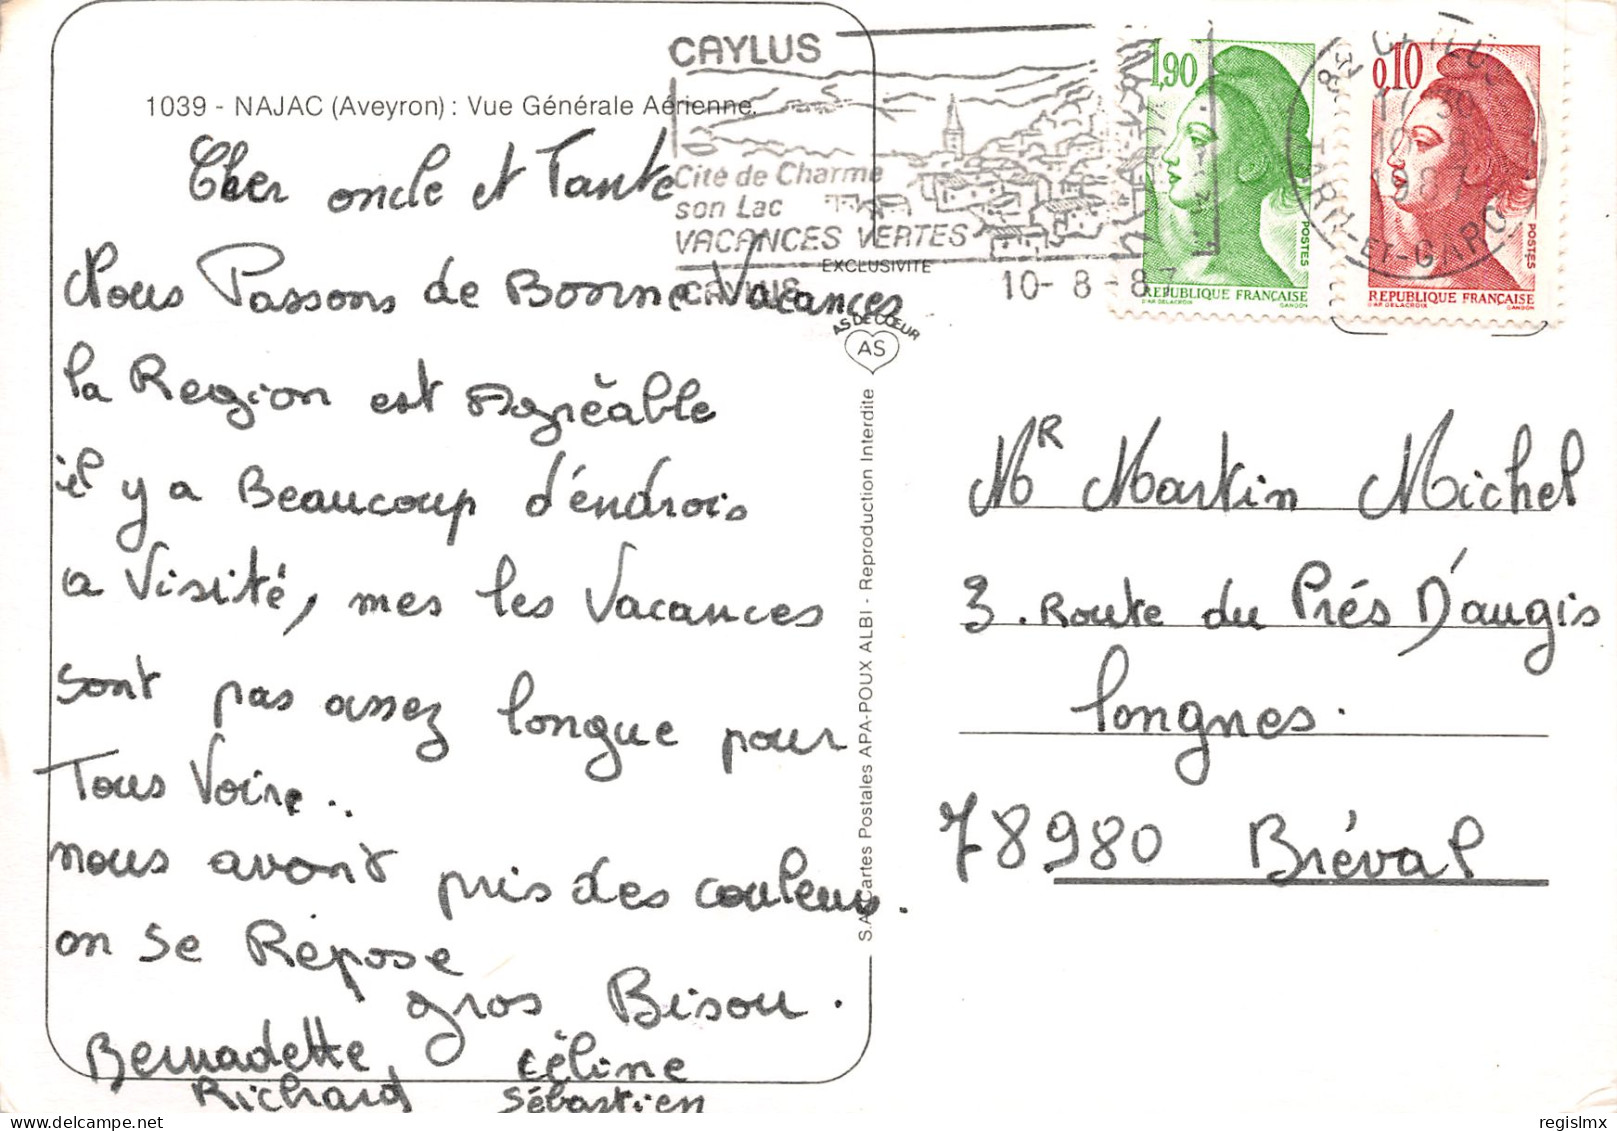 1039 - NAJAC (Aveyron) : Vue Générale Aérienne.
Cher oncle et Tante
Nous Passons de Bonne Vacances
la Region est Agréable
il y a Beaucoup d'éndrois
a Visité, mes les Vacances
sont pas assez longue pour
Tous Voire..
nous avont pris des couleurs.
on se Répose
gros Bisou.
Bernadette Céline
Richard Sébastien
CAYLUS
Cité de Charme
son Lac
VACANCES VERTES
10-8-87
EXCLUSIVITE
AS DE CŒUR
AS
S.A. Cartes Postales APA-POUX ALBI - Reproduction Interdite
1,90
POSTES
REPUBLIQUE FRANÇAISE
D'AP. DELACROIX GANDON
0,10
POSTES
REPUBLIQUE FRANÇAISE
D'AP. DELACROIX GANDON
1987
TARN-ET-GARO
Mr Martin Michel
3. Route du Prés D'augis
longnes.
78980 Bréval
regislmx